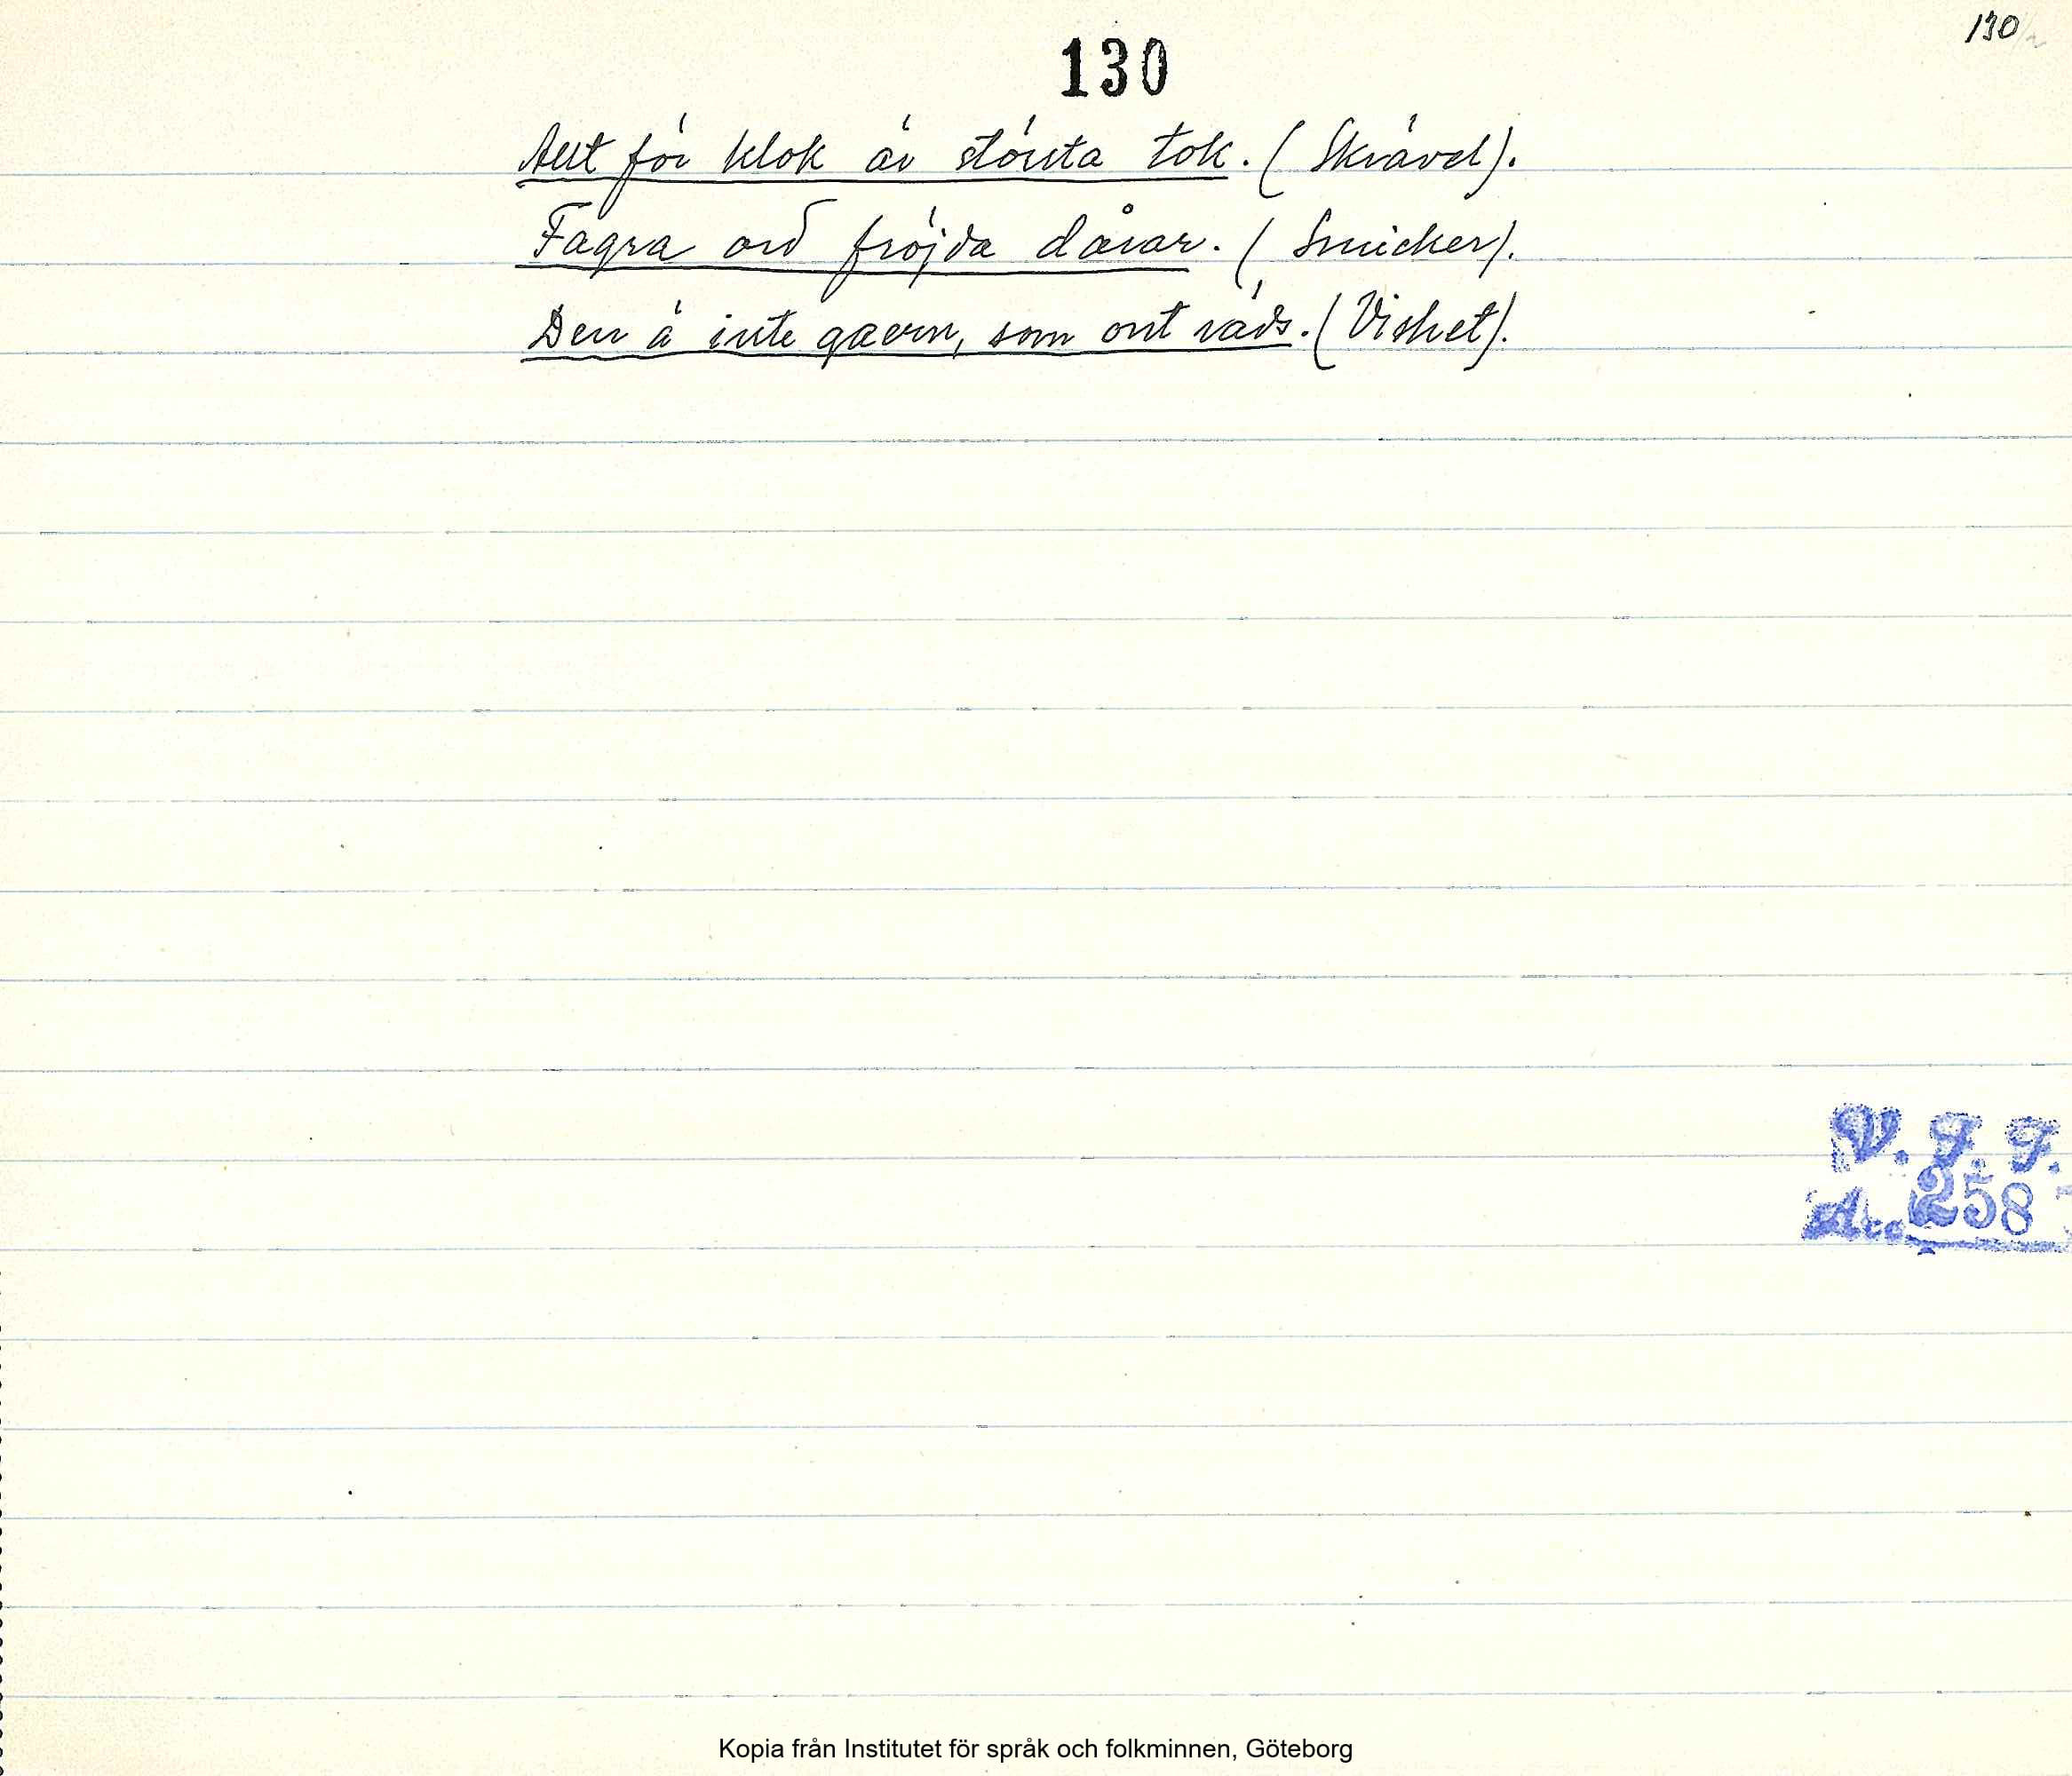 130
130
Allt för klok är största tok. (Skrävel).
Fagra ord fröjda dårar. (Smicker).
Den ä inte gavn, som ont räds. (Vishet).
V. F. F.
Acc. 258
Kopia från Institutet för språk och folkminnen, Göteborg